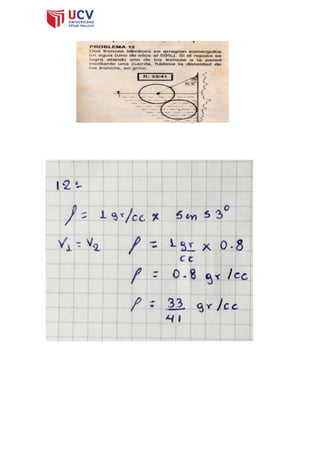 UCV
UNIVERSIDAD
CÉSAR VALLEJO
PROBLEMA 12
Dos troncos idénticos se arreglan sumergidos
en agua (uno de ellos al 50%). Si el reposo se
logra atando uno de los troncos a la pared
mediante una cuerda, hállese la densidad de
los troncos, en gr/cc.
R: 33/41
53°
12:-
ρ = 1 gr/cc x Sen 53°
V1 = V2 ρ = 1 gr/cc x 0.8
ρ = 0.8 gr/cc
ρ = 33/41 gr/cc